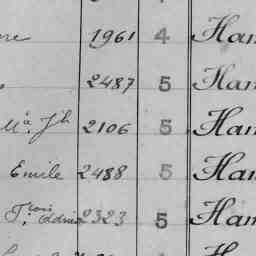 1961 4 Ham
2487 5 Ham
Jh 2106 5 Ham
Emile 2488 5 Ham
2323 5 Ham